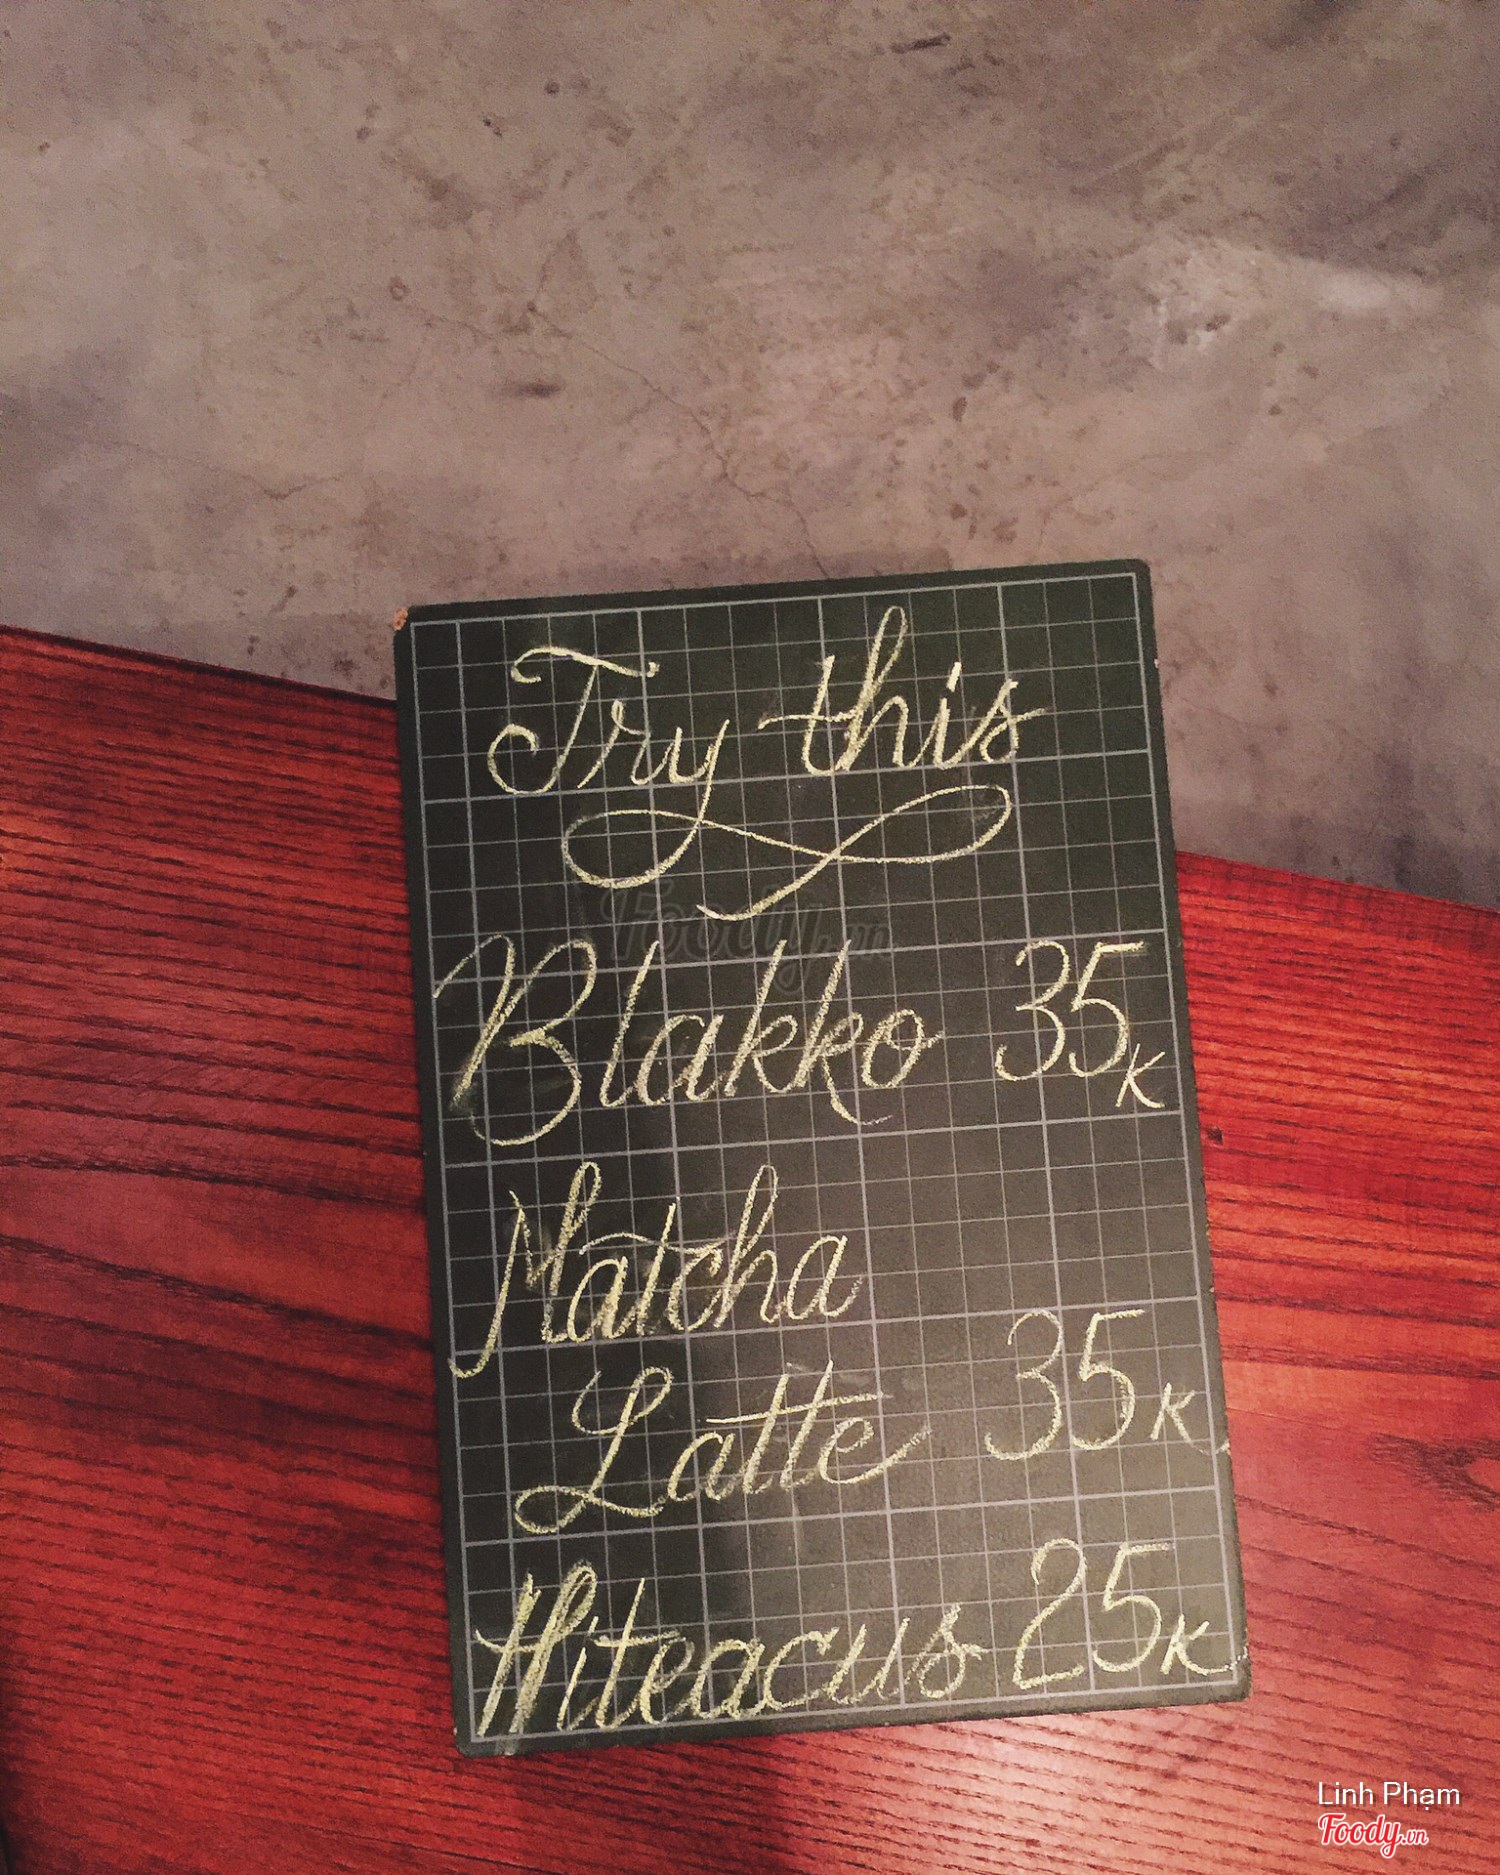 Try this
Blakko 35K
Matcha
Latte 35K
Hiteacus 25K
Foody.vn
Linh Phạm
Foody.vn